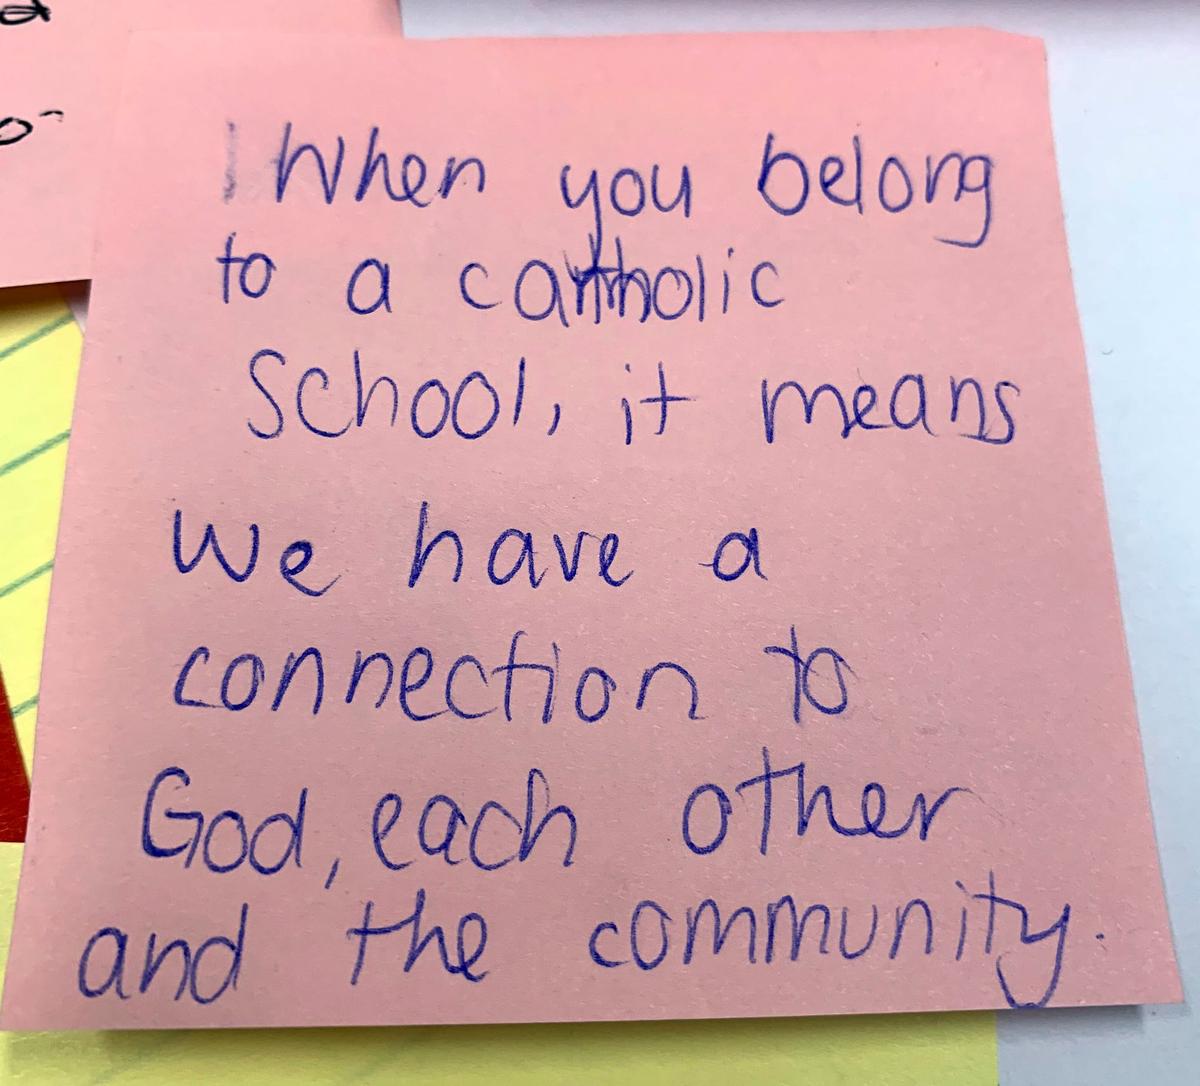 When you belong
to a catholic
School, it means
we have a
connection to
God, each other
and the community.